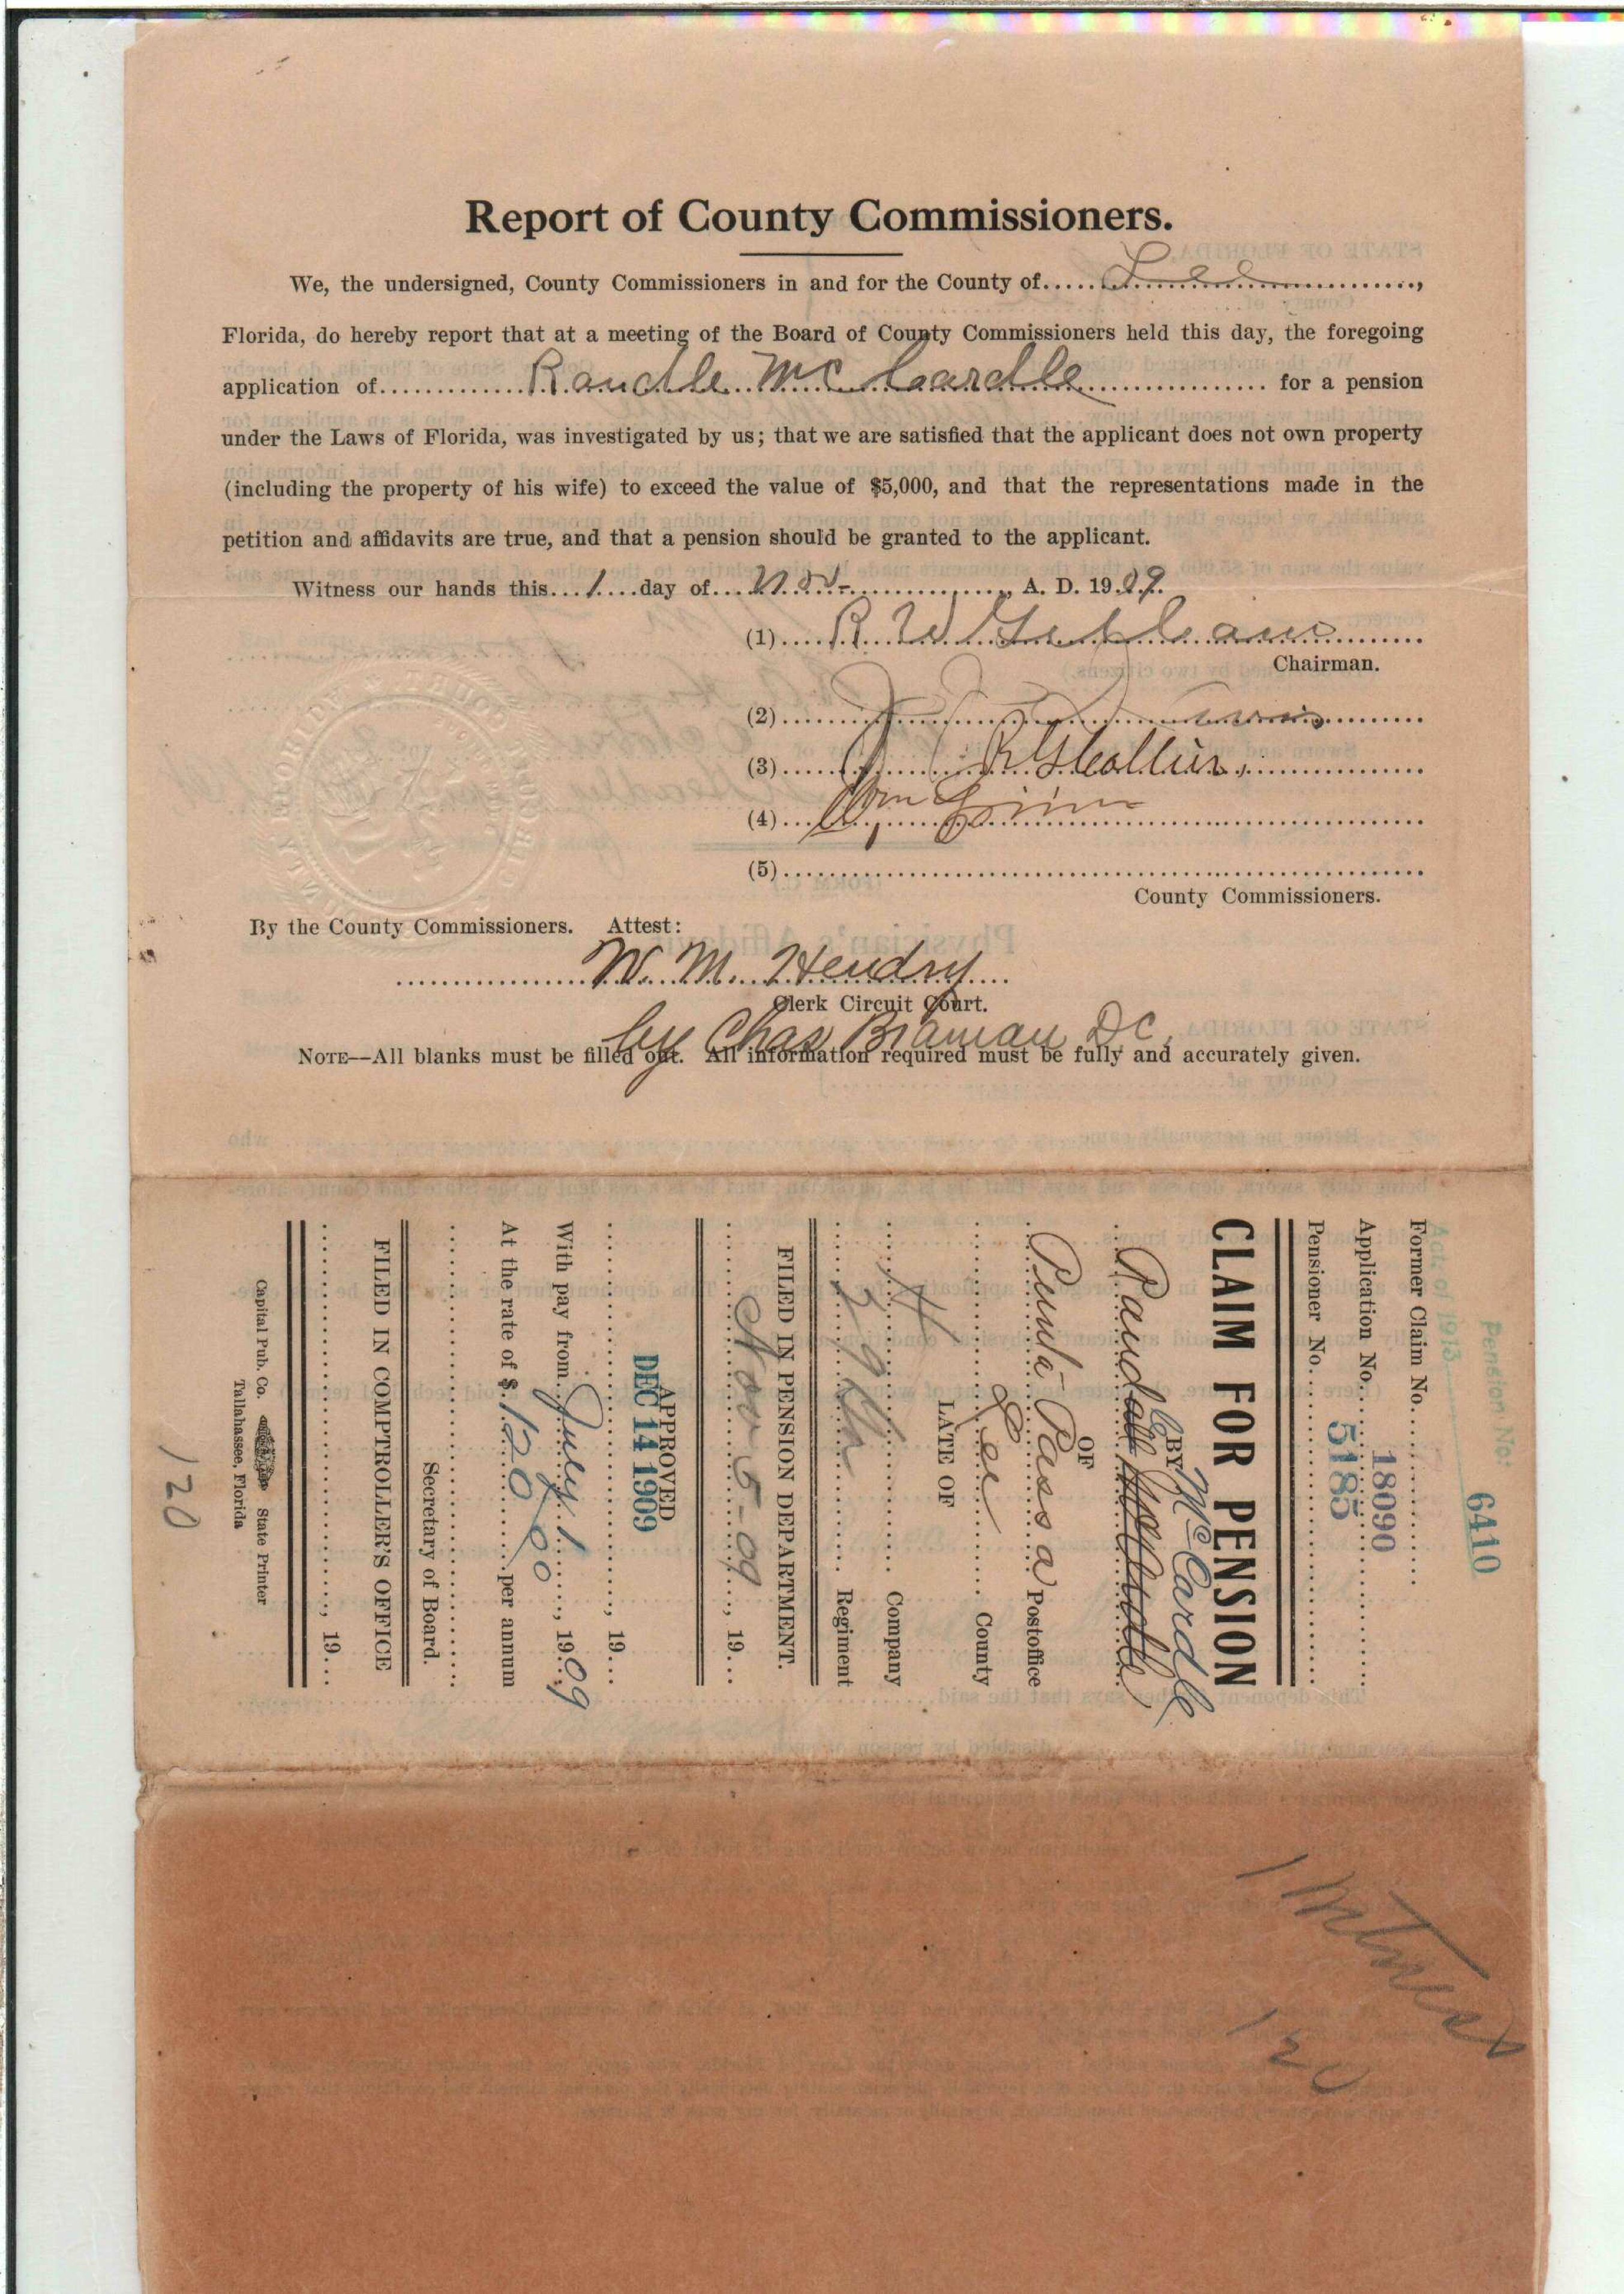 Report of County Commissioners.
We, the undersigned, County Commissioners in and for the County of.....Lee..............,
Florida, do hereby report that at a meeting of the Board of County Commissioners held this day, the foregoing
application of..............Randle McCardle.................. for a pension
under the Laws of Florida, was investigated by us; that we are satisfied that the applicant does not own property
(including the property of his wife) to exceed the value of $5,000, and that the representations made in the
petition and affidavits are true, and that a pension should be granted to the applicant.
Witness our hands this...1....day of....Nov-................., A. D. 1909.
(1)....R. W. Gilliam.........
Chairman.
(2)
(3) R G Collier
(4) Wm
(5)..........................................................................
County Commissioners.
By the County Commissioners. Attest:
..................W. M. Hendry....
Clerk Circuit Court.
by Chas Braman D C.
NOTE—All blanks must be filled out. All information required must be fully and accurately given.
Pension No: 6410
Act of 1913
Former Claim No.....................
Application No. 18090
5185
Pensioner No........................
CLAIM FOR PENSION
BY McCardle
Randle
OF
Punta Rassa Postoffice
Lee County
LATE OF
H Company
29 Ga Regiment
FILED IN PENSION DEPARTMENT.
Nov 5-09, 19...
APPROVED
DEC 14 1909
........................................, 19...
With pay from July 1, 1909
At the rate of $ 120 00 per annum
Secretary of Board.
FILED IN COMPTROLLER'S OFFICE
........................................, 19...
Capital Pub. Co. State Printer
Tallahassee, Florida
120
120